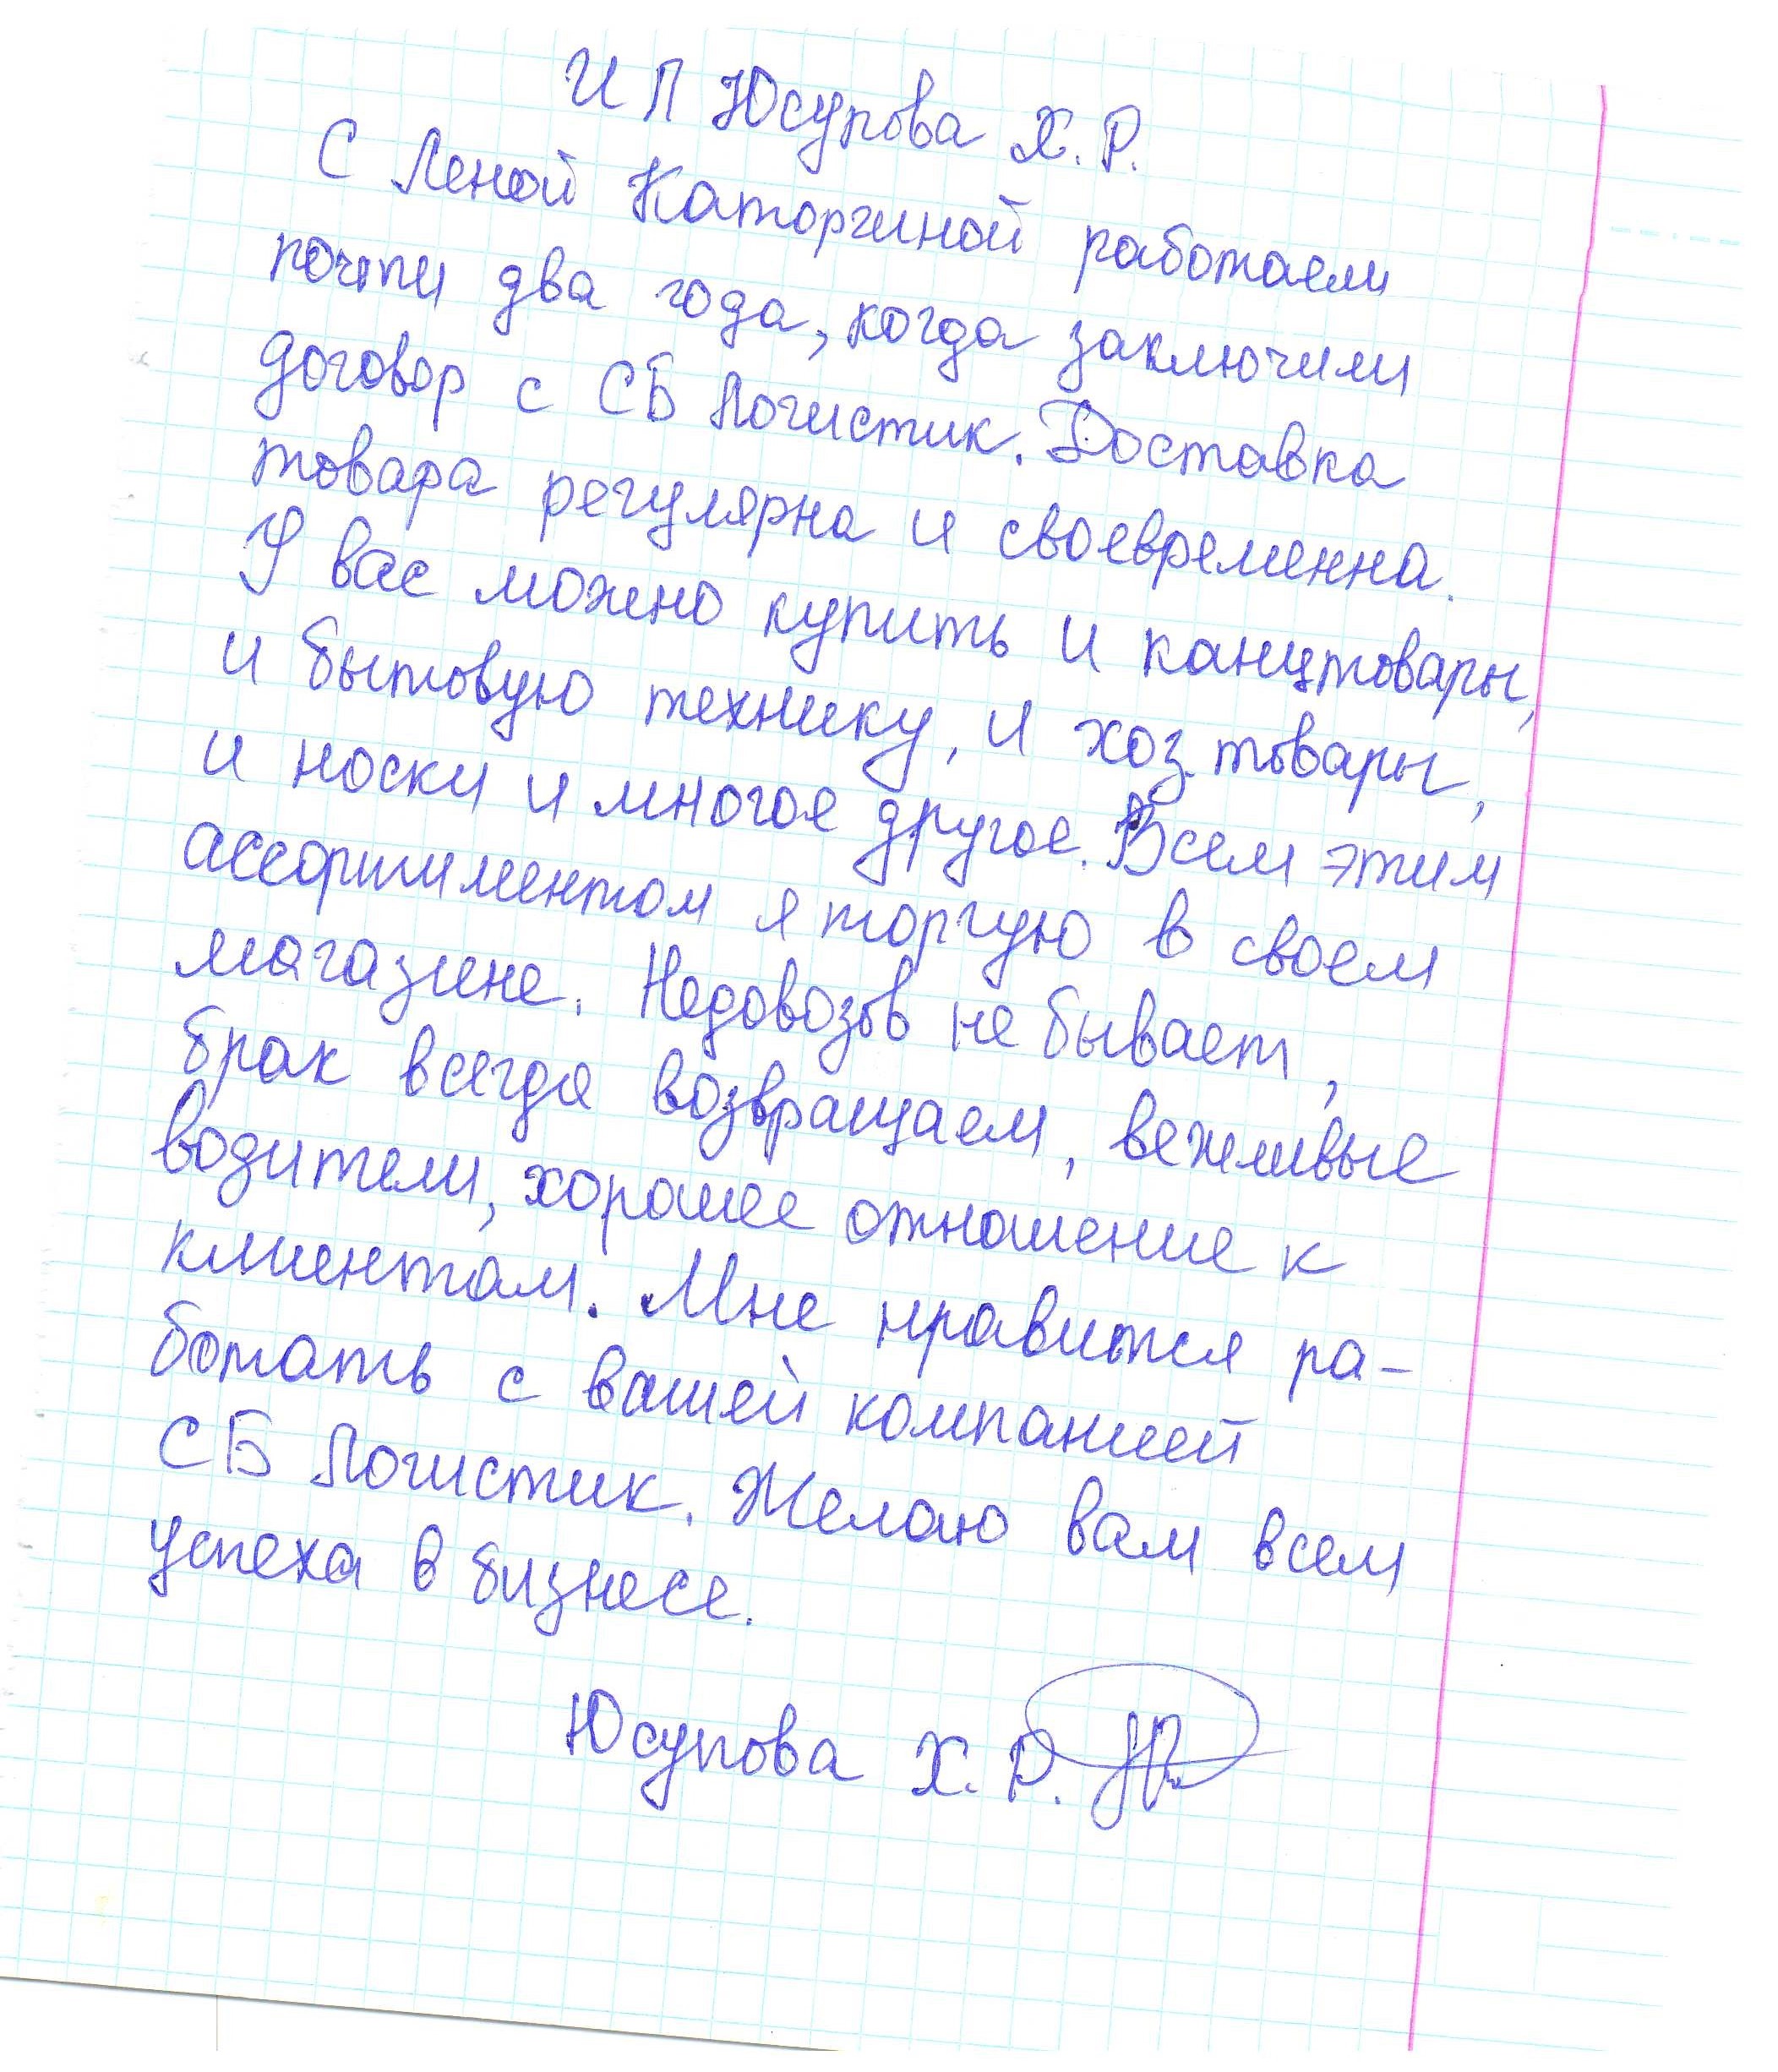 ИП Юсупова Х.Р.
С Леной Каторгиной работаем
почти два года, когда заключили
договор с СБ Логистик. Доставка
товара регулярна и своевременна.
У вас можно купить и канцтовары,
и бытовую технику, и хоз. товары,
и носки и многое другое. Всем этим
ассортиментом я торгую в своем
магазине. Недовозов не бывает,
брак всегда возвращаем, вежливые
водители, хорошее отношение к
клиентам. Мне нравится ра-
ботать с вашей компанией
СБ Логистик. Желаю вам всем
успеха в бизнесе.
Юсупова Х.Р.